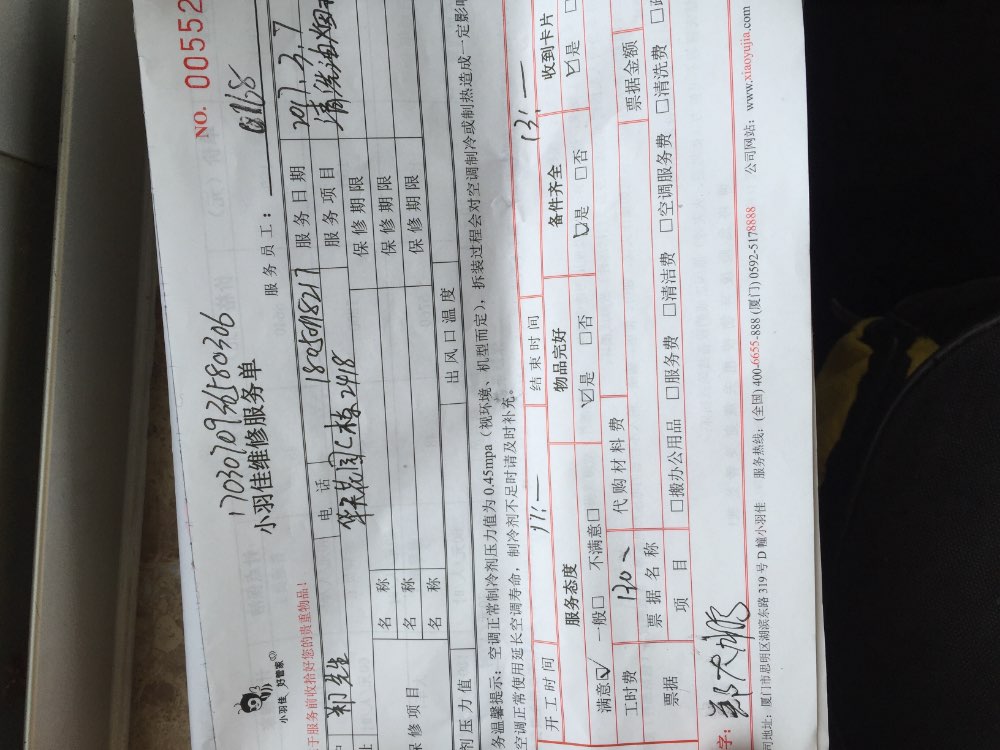 1703070936580306
小羽佳 好管家
小羽佳维修服务单
NO. 00552
于服务前收拾好您的贵重物品!
服务员工:
电话 18050118217 服务日期 2017.3.7
华天花园C栋2418 服务项目 清洗油烟
名称 保修期限
保修项目 名称 保修期限
名称 保修期限
剂压力值 出风口温度
务温馨提示: 空调正常制冷剂压力值为 0.45mpa(视环境、机型而定),拆装过程会对空调制冷或制热造成一定影响
空调正常使用延长空调寿命,制冷剂不足时请及时补充。
开工时间 11:— 结束时间 13:—
服务态度 物品完好 备件齐全 收到卡片
满意☑ 一般□ 不满意□ ☑是 □否 ☑是 □否 ☑是
工时费 130 代购材料费
票据 票据名称 票据金额
项目 □搬办公用品 □服务费 □清洁费 □空调服务费 □清洗费
字:
司地址: 厦门市思明区湖滨东路 319 号 D 幢小羽佳 服务热线: (全国) 400-6655-888 (厦门) 0592-5178888 公司网站: www.xiaoyujia.com